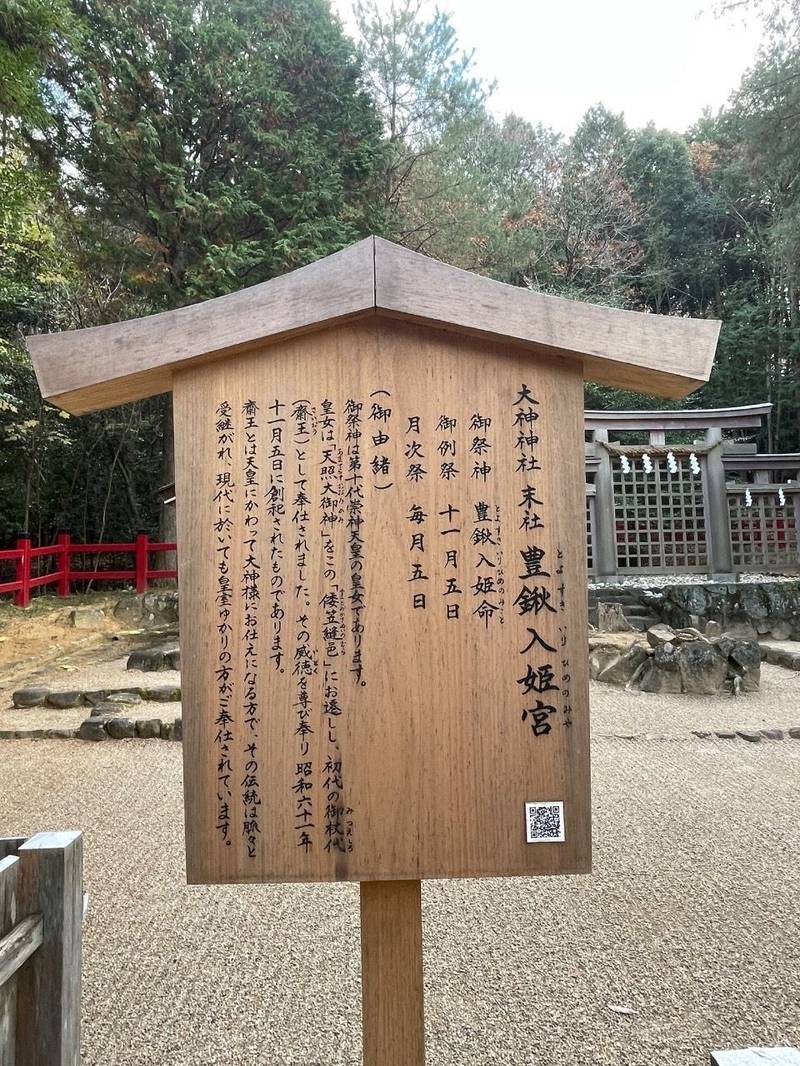 とよすきいりひめのみや
大神神社 末社 豊鍬入姫宮
とよすきいりひめのみこと
御祭神 豊鍬入姫命
御例祭 十一月五日
月次祭 毎月五日
(御由緒)
御祭神は第十代崇神天皇の皇女であります。
みつえしろ
皇女は「天照大御神」をこの「倭笠縫邑」にお遷しし、初代の御杖代
さいおう いとく
(齋王)として奉仕されました。その威徳を尊び奉り 昭和六十一年
十一月五日に創祀されたものであります。
齋王とは天皇にかわって大神様にお仕えになる方で、その伝統は脈々と
受継がれ、現代に於いても皇室ゆかりの方がご奉仕されています。